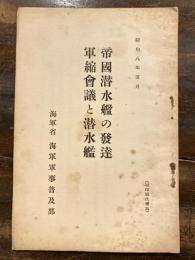 昭和八年五月
帝國潜水艦の發達
軍縮會議と潜水艦
海軍省 海軍軍事普及部